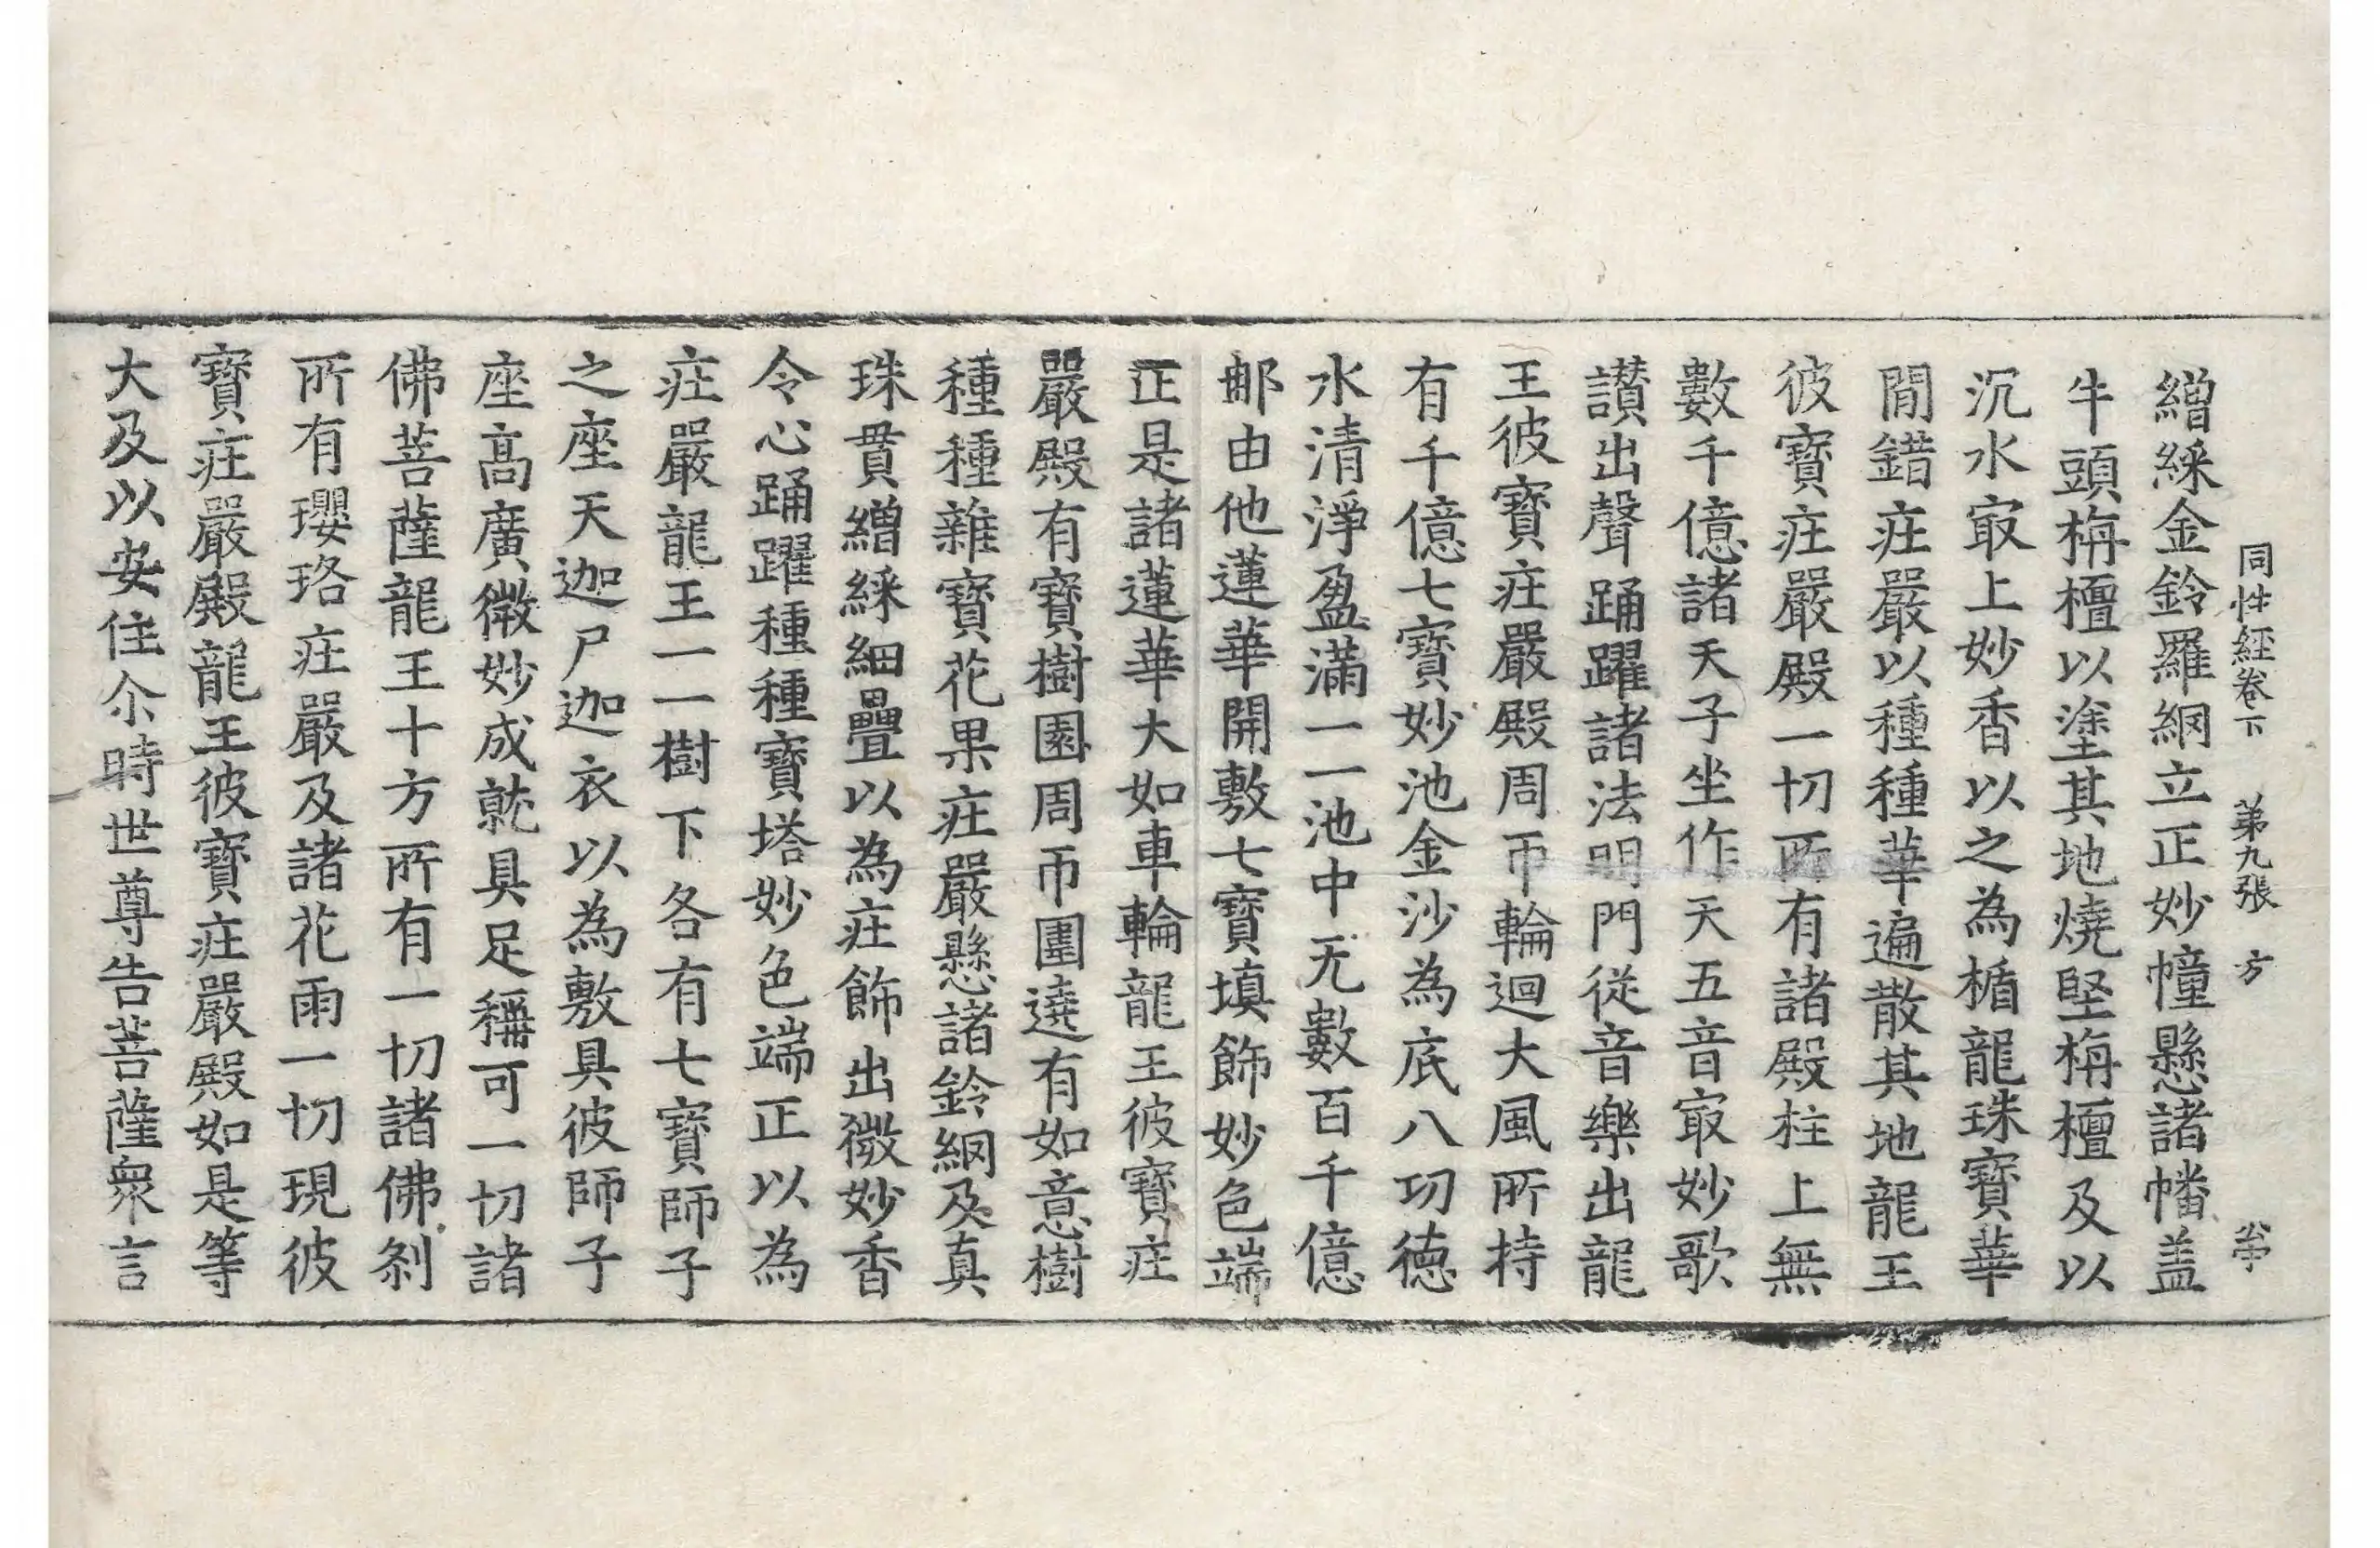 同性經卷下　第九張　方
繒綵金鈴羅網立正妙幢懸諸幡盖
牛頭栴檀以塗其地燒堅栴檀及以
沉水㝡上妙香以之為楯龍珠寶華
間錯庄嚴以種種華遍散其地龍王
彼寶庄嚴殿一切所有諸殿柱上無
數千億諸天子坐作天五音㝡妙歌
讃出聲踊躍諸法明門從音樂出龍
王彼寶庄嚴殿周帀輪迴大風所持
有千億七寶妙池金沙為底八功徳
水清淨盈滿一一池中无數百千億
邮由他蓮華開敷七寶填飾妙色端
正是諸蓮華大如車輪龍王彼寶庄
嚴殿有寶樹園周帀圍遶有如意樹
種種雜寶花果庄嚴懸諸鈴網及真
珠貫繒綵細疊以為庄飾出微妙香
令心踊躍種種寶塔妙色端正以為
庄嚴龍王一一樹下各有七寶師子
之座天迦尸迦衣以為敷具彼師子
座高廣微妙成就具足稱可一切諸
佛菩薩龍王十方所有一切諸佛刹
所有瓔珞庄嚴及諸花雨一切現彼
寶庄嚴殿龍王彼寶庄嚴殿如是等
大及以安住尒時世尊告菩薩衆言